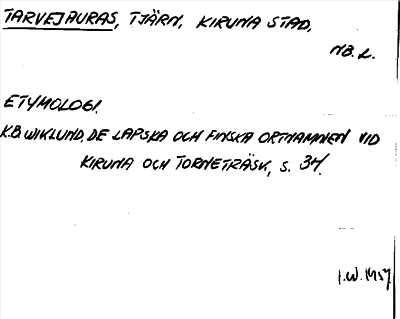 TARVEJAURAS, TJÄRN, KIRUNA STAD,
NB. L.
ETYMOLOGI.
K.B. WIKLUND, DE LAPSKA OCH FINSKA ORTNAMNEN VID
KIRUNA OCH TORNETRÄSK, S. 34.
I.W. 1957